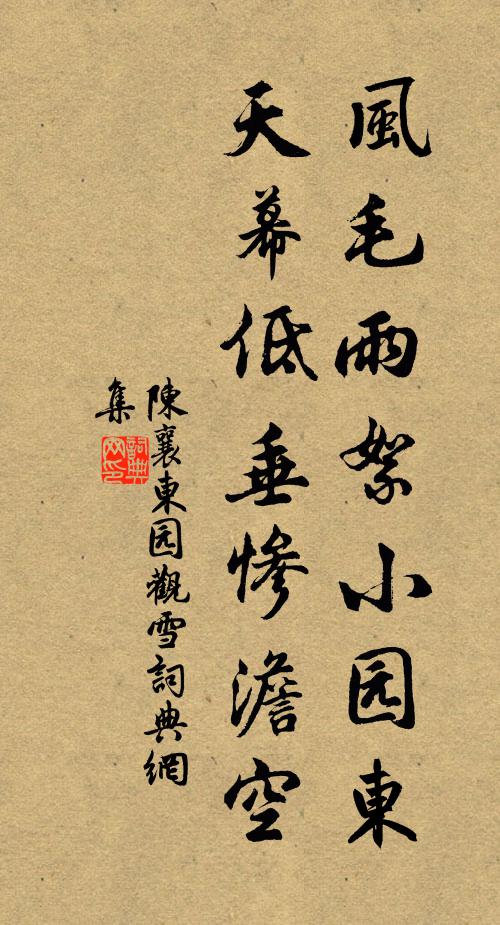 風毛雨絮小园東
天幕低垂慘澹空
陳襄東园觀雪詞典網
集
詞典
网印